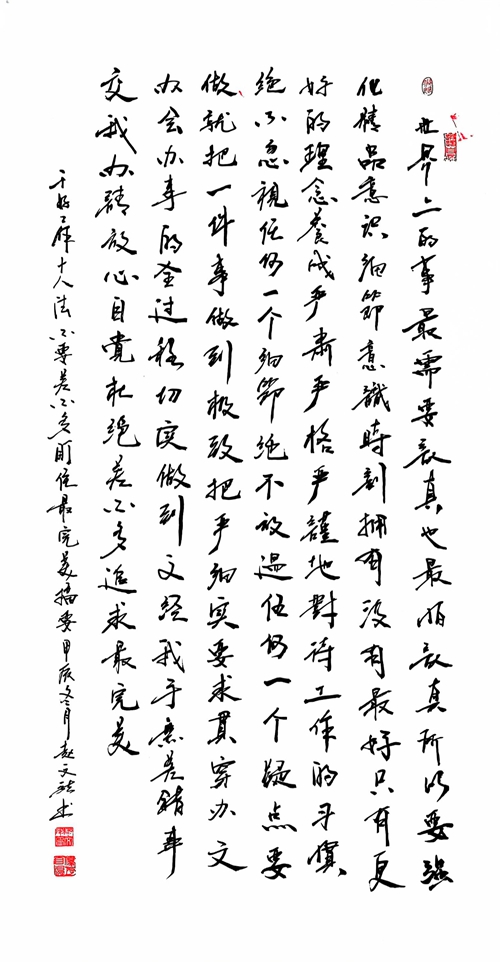 世界上的事最需要认真也最怕认真所以要强
化精品意识细節意識時刻拥有没有最好只有更
好的理念養成严肃严格严謹地對待工作的习慣
绝不忽視任何一个细節绝不放過任何一个疑点要
做就把一件事做到极致把严细实要求贯穿办文
办会办事的全过程切实做到文经我手无差错事
交我办請放心自觉杜绝差不多追求最完美
干好工作十八法不要差不多盯住最完美摘要甲辰冬月赵文